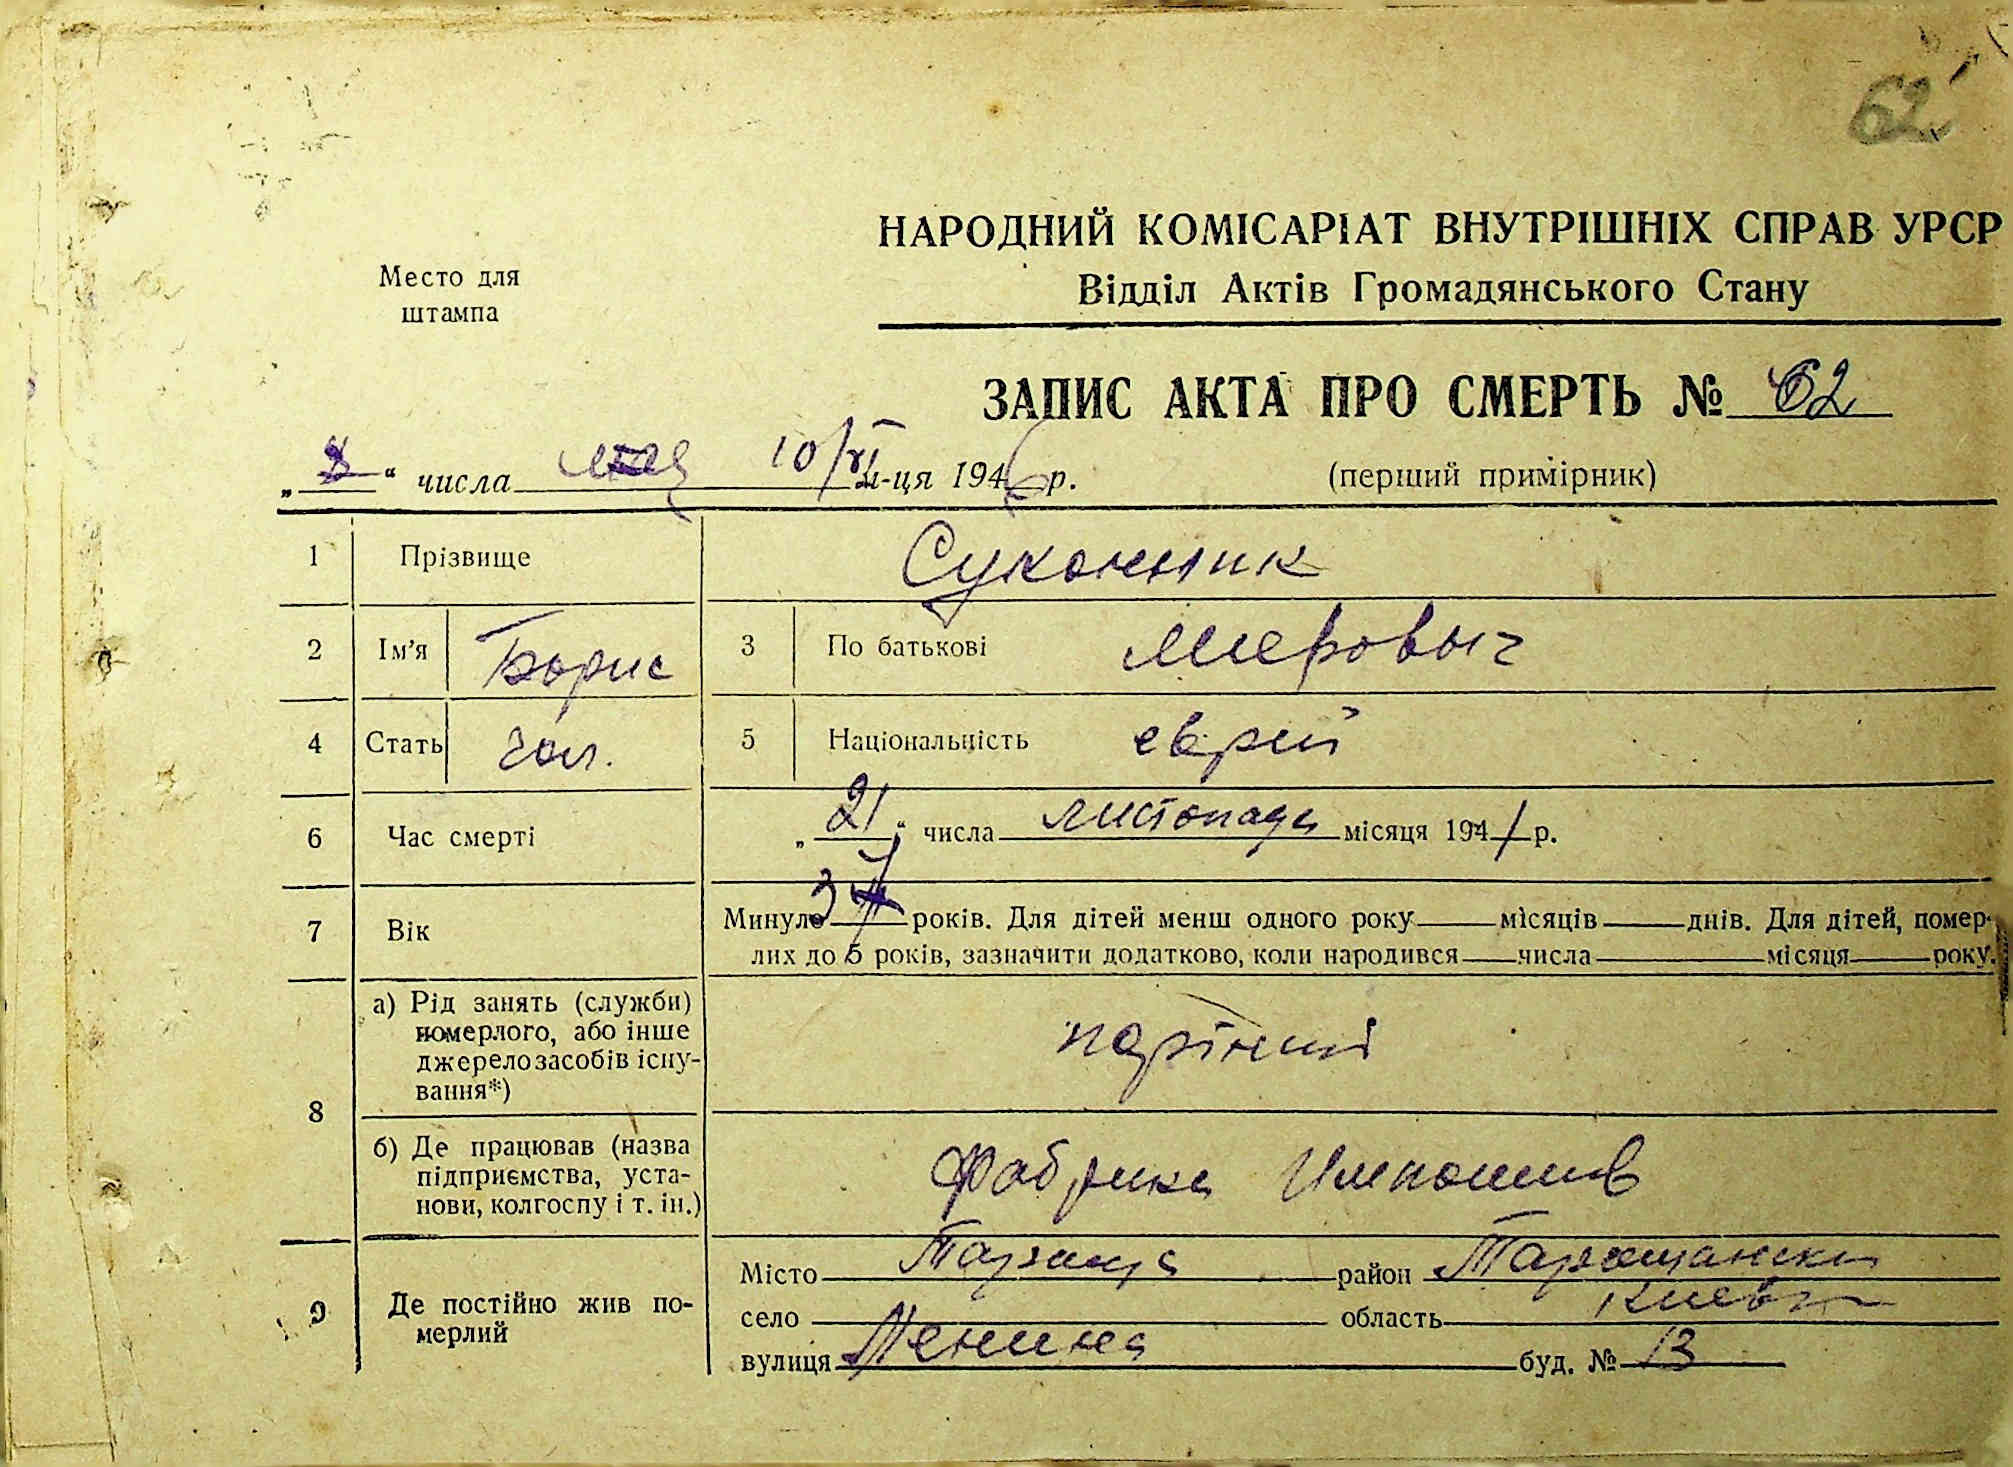 62
НАРОДНИЙ КОМІСАРІАТ ВНУТРІШНІХ СПРАВ УРСР
Место для
штампа
Відділ Актів Громадянського Стану
ЗАПИС АКТА ПРО СМЕРТЬ № 62
„8“ числа мая 10/VI м-ця 1946 р. (перший примірник)
1 Прізвище Суконник
2 Ім'я Борис 3 По батькові Меерович
4 Стать чол. 5 Національність еврей
6 Час смерті „21“ числа листопада місяця 1941 р.
7 Вік Минуло 37 років. Для дітей менш одного року місяців днів. Для дітей, помер-
лих до 5 років, зазначити додатково, коли народився числа місяця року.
8 а) Рід занять (служби)
померлого, або інше
джерело засобів існу-
вання*)
б) Де працював (назва
підприємства, уста-
нови, колгоспу і т. ін.)
Фабрика
9 Де постійно жив по-
мерлий
Місто Тараща район Таращански
село область Киевск
вулиця Ленина буд. № 13